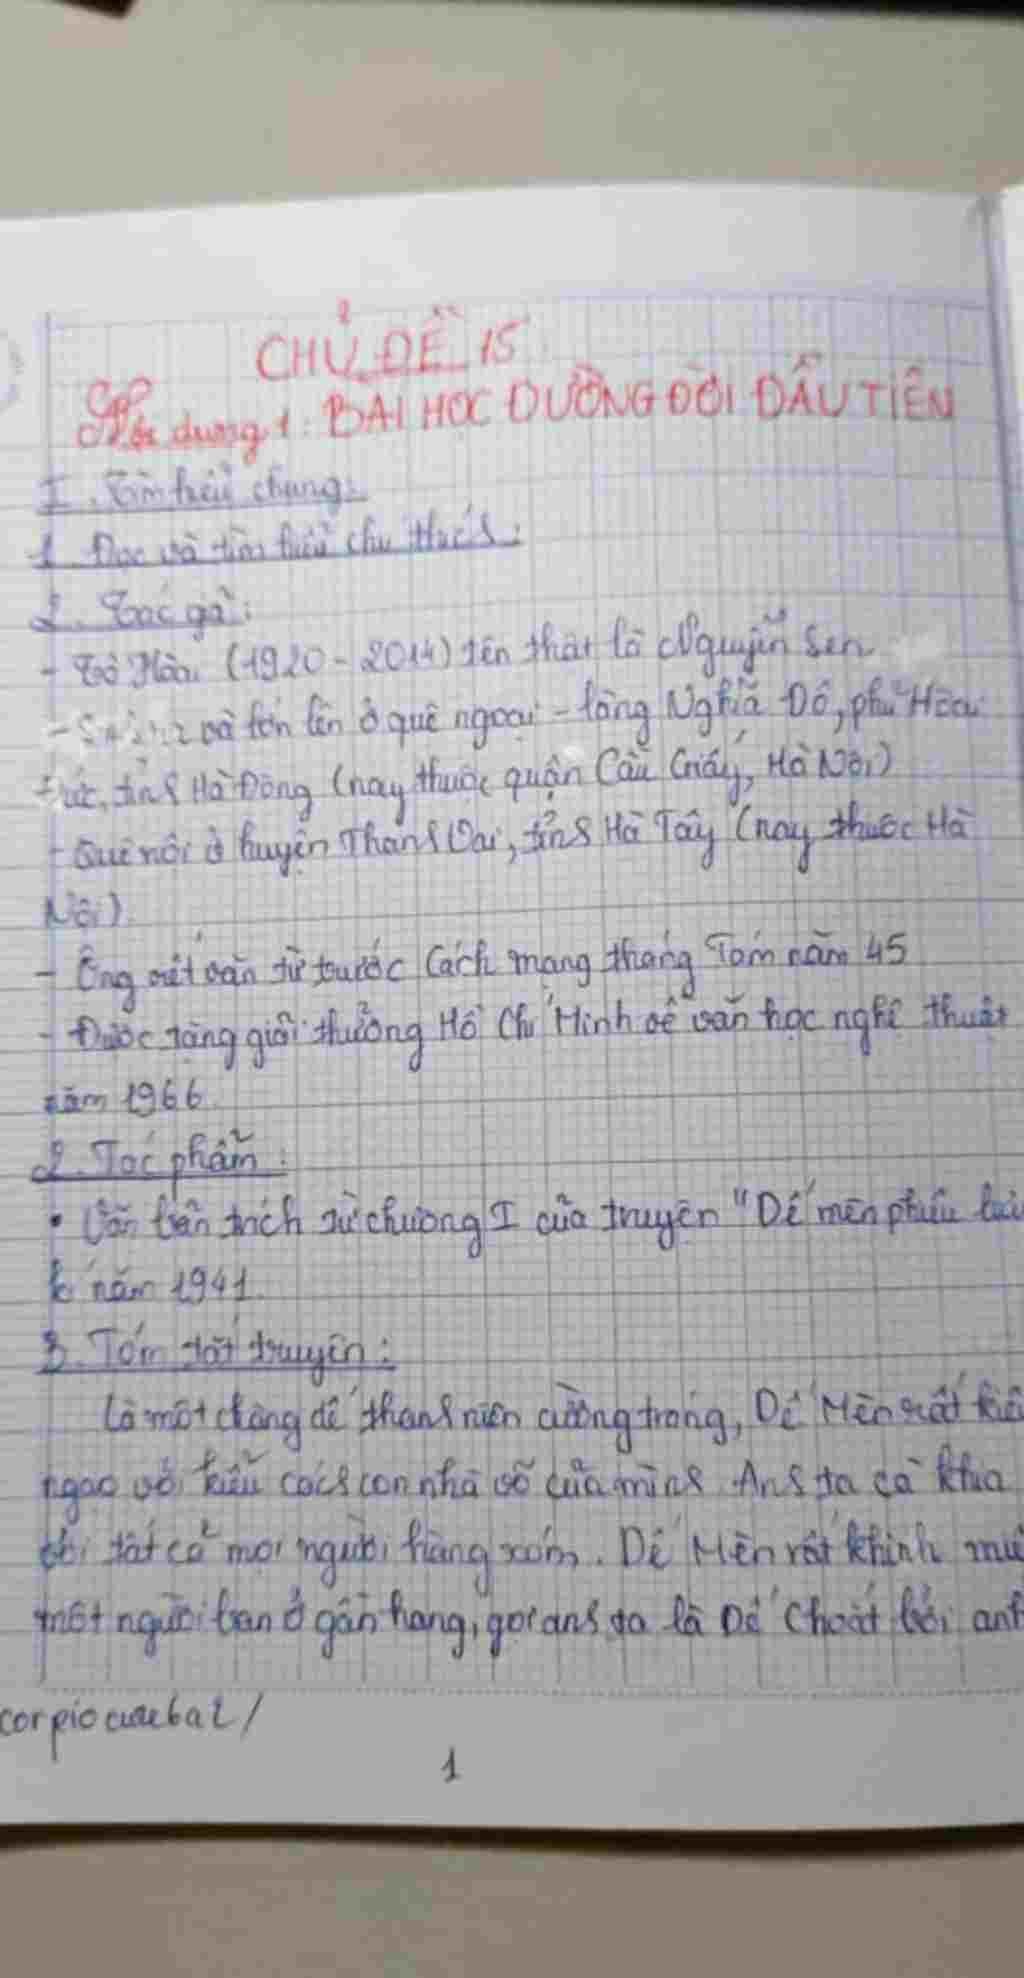 CHỦ ĐỀ 15
Nội dung 1: BÀI HỌC ĐƯỜNG ĐỜI ĐẦU TIÊN
I. Tìm hiểu chung:
1. Đọc và tìm hiểu chú thích:
2. Tác giả:
- Tô Hoài (1920-2014) tên thật là Nguyễn Sen
- Sinh ra và lớn lên ở quê ngoại - làng Nghĩa Đô, phủ Hoài
Đức, tỉnh Hà Đông (nay thuộc quận Cầu Giấy, Hà Nội)
- Quê nội ở huyện Thanh Oai, tỉnh Hà Tây (nay thuộc Hà
Nội)
- Ông viết văn từ trước Cách mạng tháng Tám năm 45
- Được tặng giải thưởng Hồ Chí Minh về văn học nghệ thuật
năm 1966
2. Tác phẩm:
• Văn bản trích từ chương I của truyện "Dế mèn phiêu lưu
kí năm 1941
3. Tóm tắt truyện:
Là một chàng dế thanh niên cường tráng, Dế Mèn rất kiêu
ngạo với kiểu cách con nhà võ của mình. Anh ta cà khịa
với tất cả mọi người hàng xóm. Dế Mèn rất khinh
một người bạn ở gần hang, gọi anh ta là Dế Choắt bởi anh
1